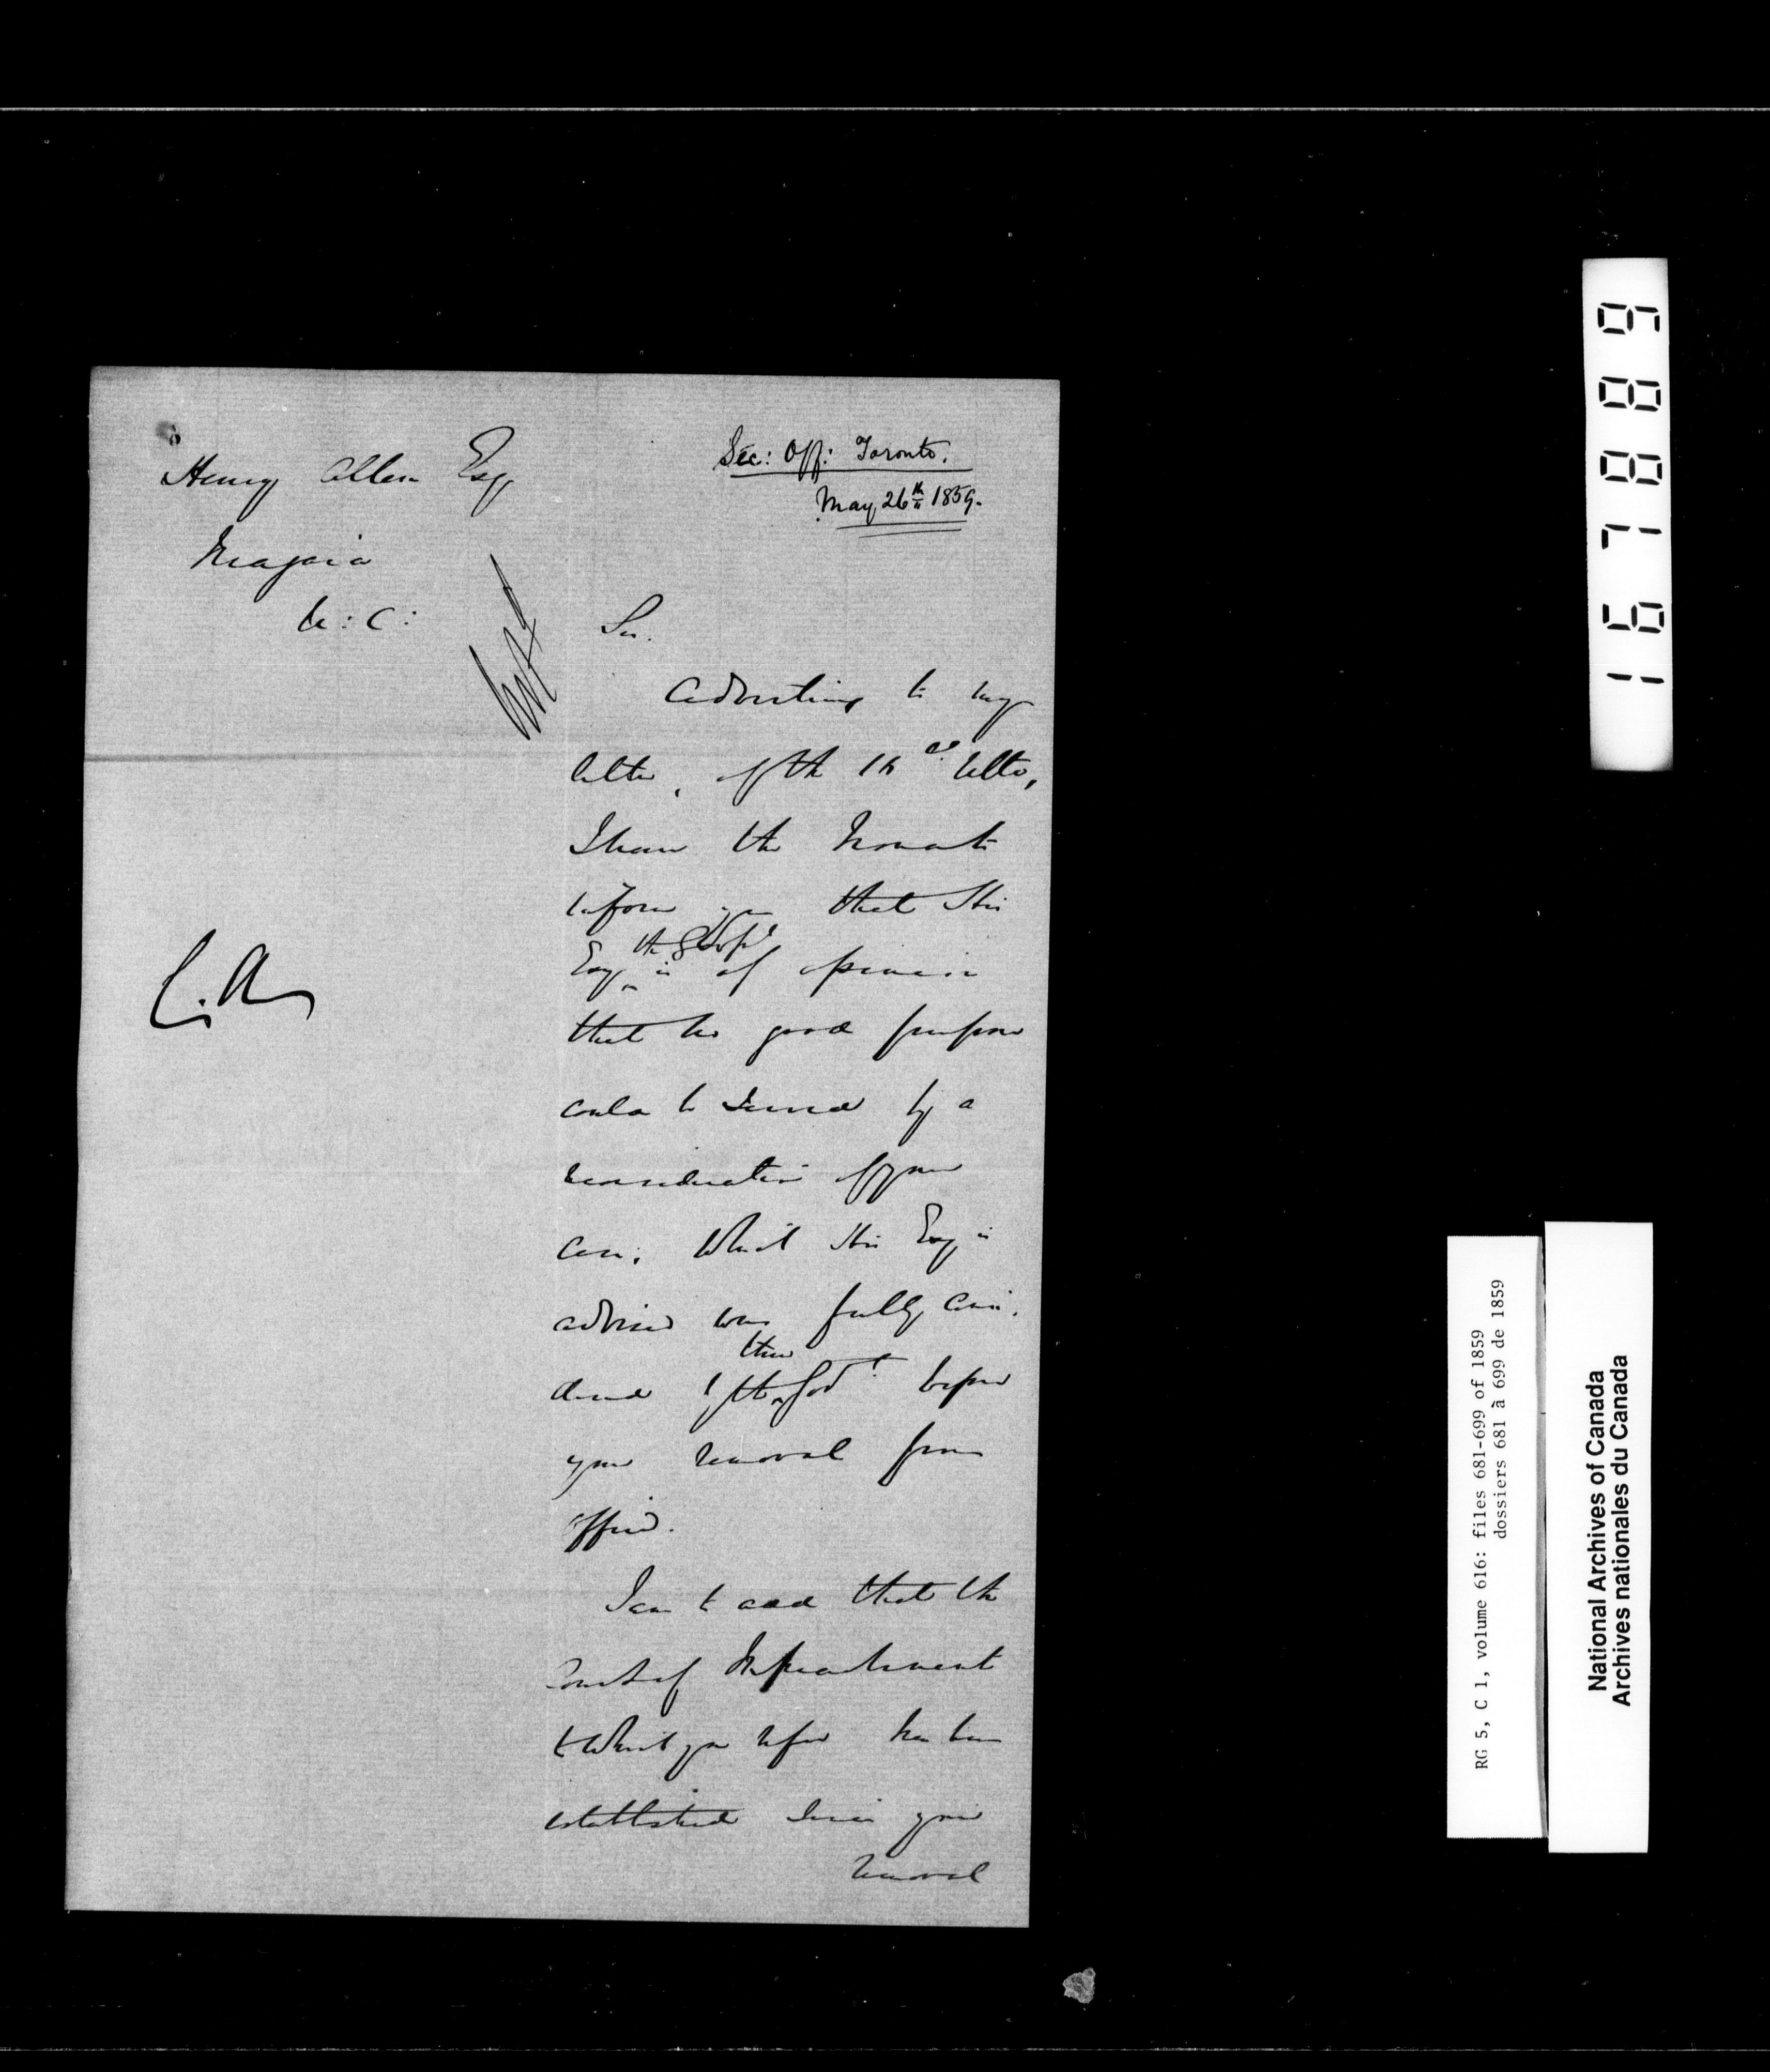 Henry Allen Esq
Niagara
U: C:
Sec: Off: Toronto.
May 26th 1859.
Sir.
Adverting to my
letter, of the Ulto,
I have the honor to
inform you that His
Excy the Gov Genl is of opinion
that no good purpose
could be served by a
reconsideration of your
case, which His Excy is
advised was fully consi-
dered by the then Govt before
your removal from
office.
I am to add that the
Court of Impeachment
to which you refer has been
established since your
removal
167889
RG 5, C 1, volume 616: files 681-699 of 1859
dossiers 681 à 699 de 1859
National Archives of Canada
Archives nationales du Canada